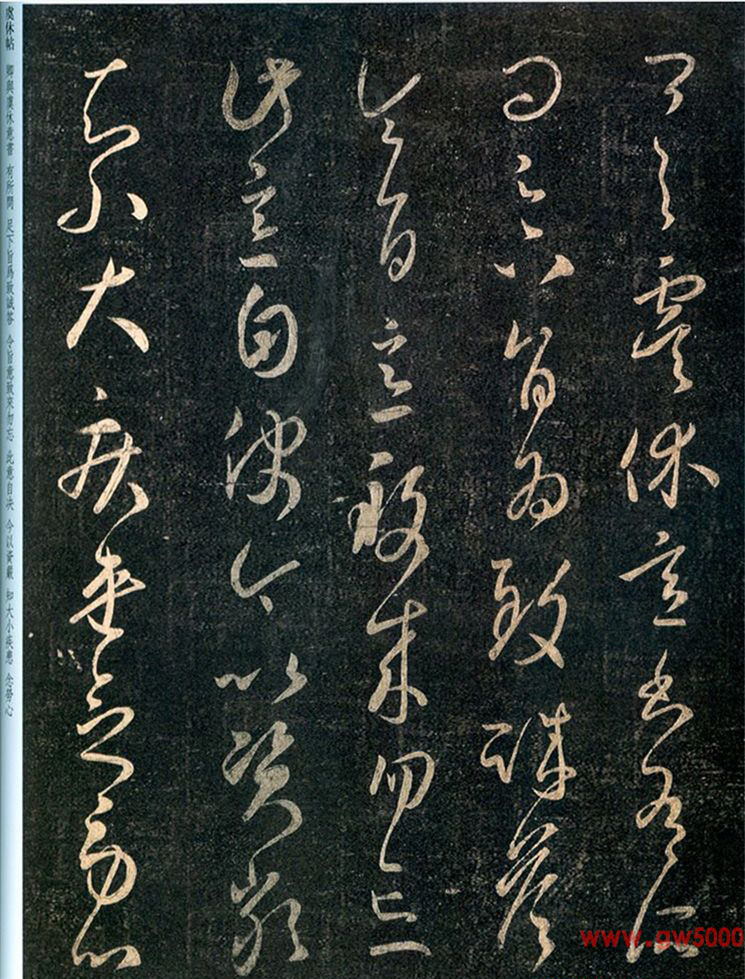 卿與虞休意書有所
問足下旨爲致誠答
令旨意致來勿忘
此意自決今以資嚴
知小大疾患念勞心
虞休帖 卿與虞休意書 有所問 足下旨爲致誠答 令旨意致來勿忘 此意自決 今以資嚴 知大小疾患 念勞心
www.gw5000